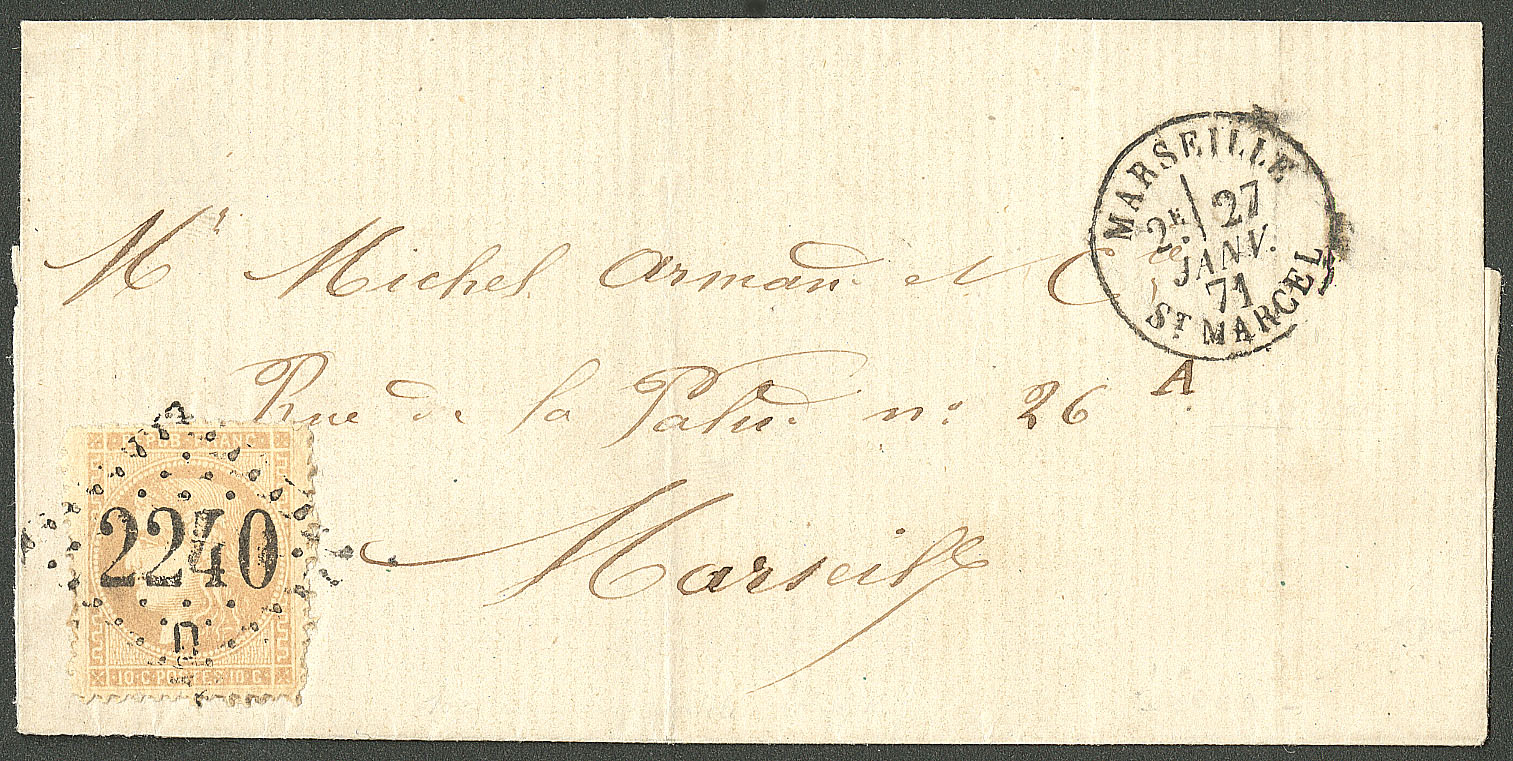 MARSEILLE
2E 27
JANV.
71
ST MARCEL
Mr Michel Armand et Cie
Rue de la Palud. n: 26
A
Marseille
REPUB·FRANC·
2240
D
10·C POSTES 10·C